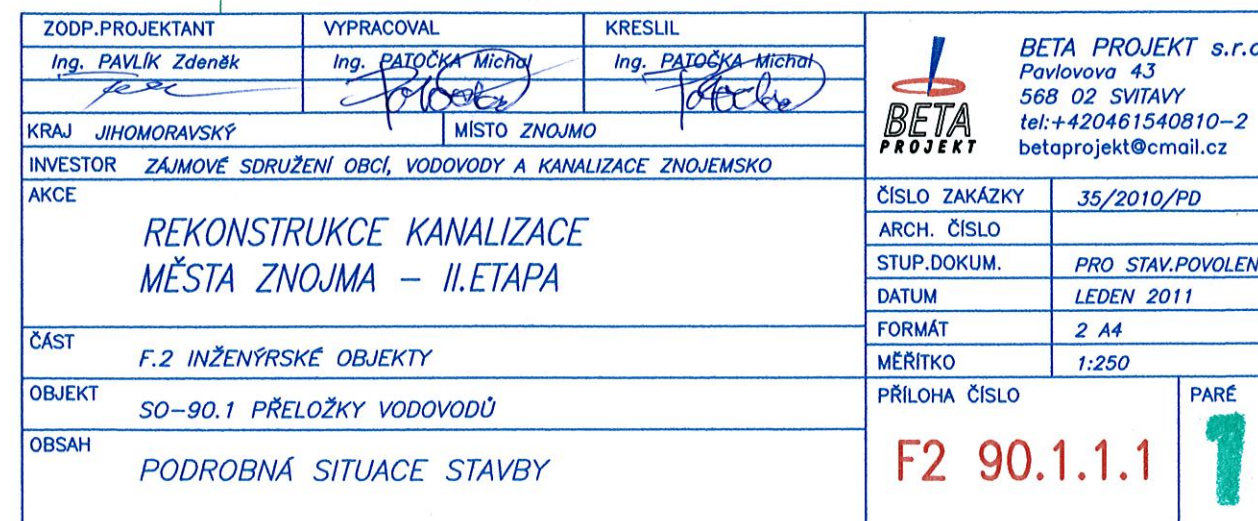 ZODP.PROJEKTANT VYPRACOVAL KRESLIL
Ing. PAVLÍK Zdeněk Ing. PATOČKA Michal Ing. PATOČKA Michal
KRAJ JIHOMORAVSKÝ MÍSTO ZNOJMO
INVESTOR ZÁJMOVÉ SDRUŽENÍ OBCÍ, VODOVODY A KANALIZACE ZNOJEMSKO
AKCE
REKONSTRUKCE KANALIZACE
MĚSTA ZNOJMA – II.ETAPA
ČÁST
F.2 INŽENÝRSKÉ OBJEKTY
OBJEKT
SO-90.1 PŘELOŽKY VODOVODŮ
OBSAH
PODROBNÁ SITUACE STAVBY
BETA
PROJEKT
BETA PROJEKT s.r.o
Pavlovova 43
568 02 SVITAVY
tel:+420461540810-2
betaprojekt@cmail.cz
ČÍSLO ZAKÁZKY 35/2010/PD
ARCH. ČÍSLO
STUP.DOKUM. PRO STAV.POVOLEN
DATUM LEDEN 2011
FORMÁT 2 A4
MĚŘÍTKO 1:250
PŘÍLOHA ČÍSLO PARÉ
F2 90.1.1.1 1